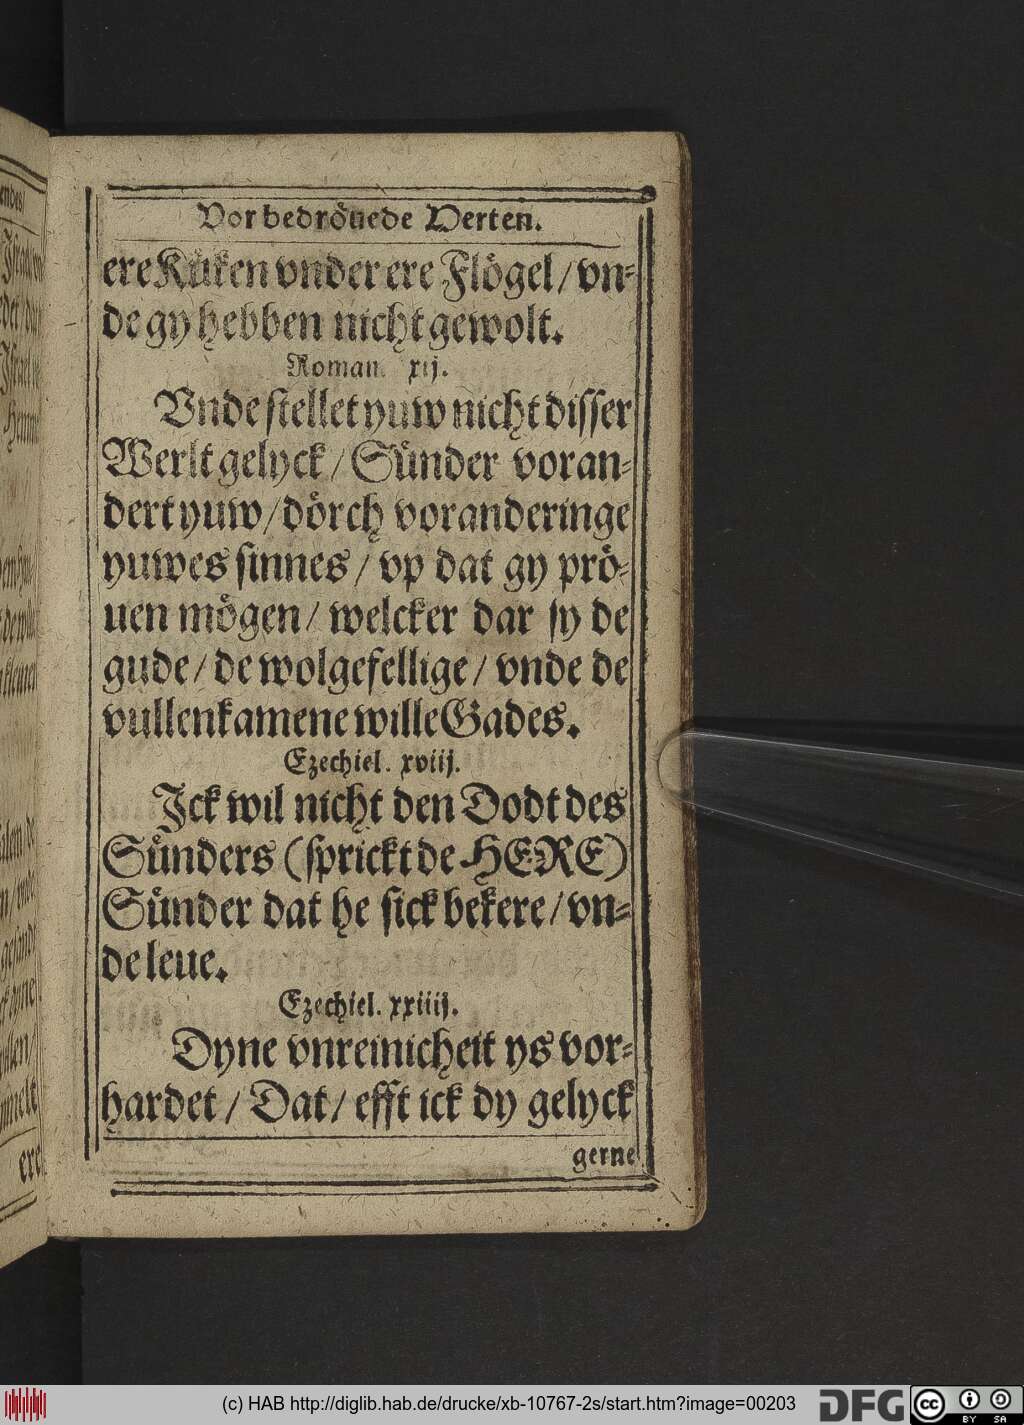 Vor bedröuede Herten.
ere Küken vnder ere Flögel / vn⸗
de gy hebben nicht gewolt.
Roman. xij.
Vnde stellet yuw nicht disser
Werlt gelyck / Sünder voran⸗
dert yuw / dörch voranderinge
yuwes sinnes / vp dat gy prö⸗
uen mögen / welcker dar sy de
gude / de wolgefellige / vnde de
vullenkamene wille Gades.
Ezechiel. xviij.
Jck wil nicht den Dodt des
Sünders (sprickt de HERE)
Sünder dat he sick bekere / vn⸗
de leue.
Ezechiel. xxiiij.
Dyne vnreinicheit ys vor⸗
hardet / Dat / efft ick dy gelyck
gerne
(c) HAB http://diglib.hab.de/drucke/xb-10767-2s/start.htm?image=00203
DFG
cc BY SA